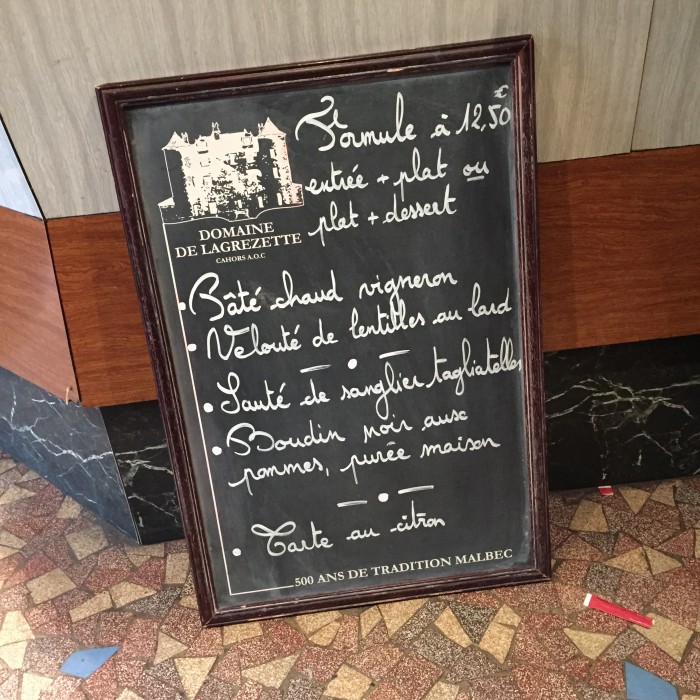 Formule à 12,50 €
entrée + plat ou
plat + dessert
DOMAINE
DE LAGREZETTE
CAHORS A.O.C
• Pâté chaud vigneron
• Velouté de lentilles au lard
— • —
• Sauté de sanglier tagliatelles
• Boudin noir aux
pommes, purée maison
— • —
• Tarte au citron
500 ANS DE TRADITION MALBEC